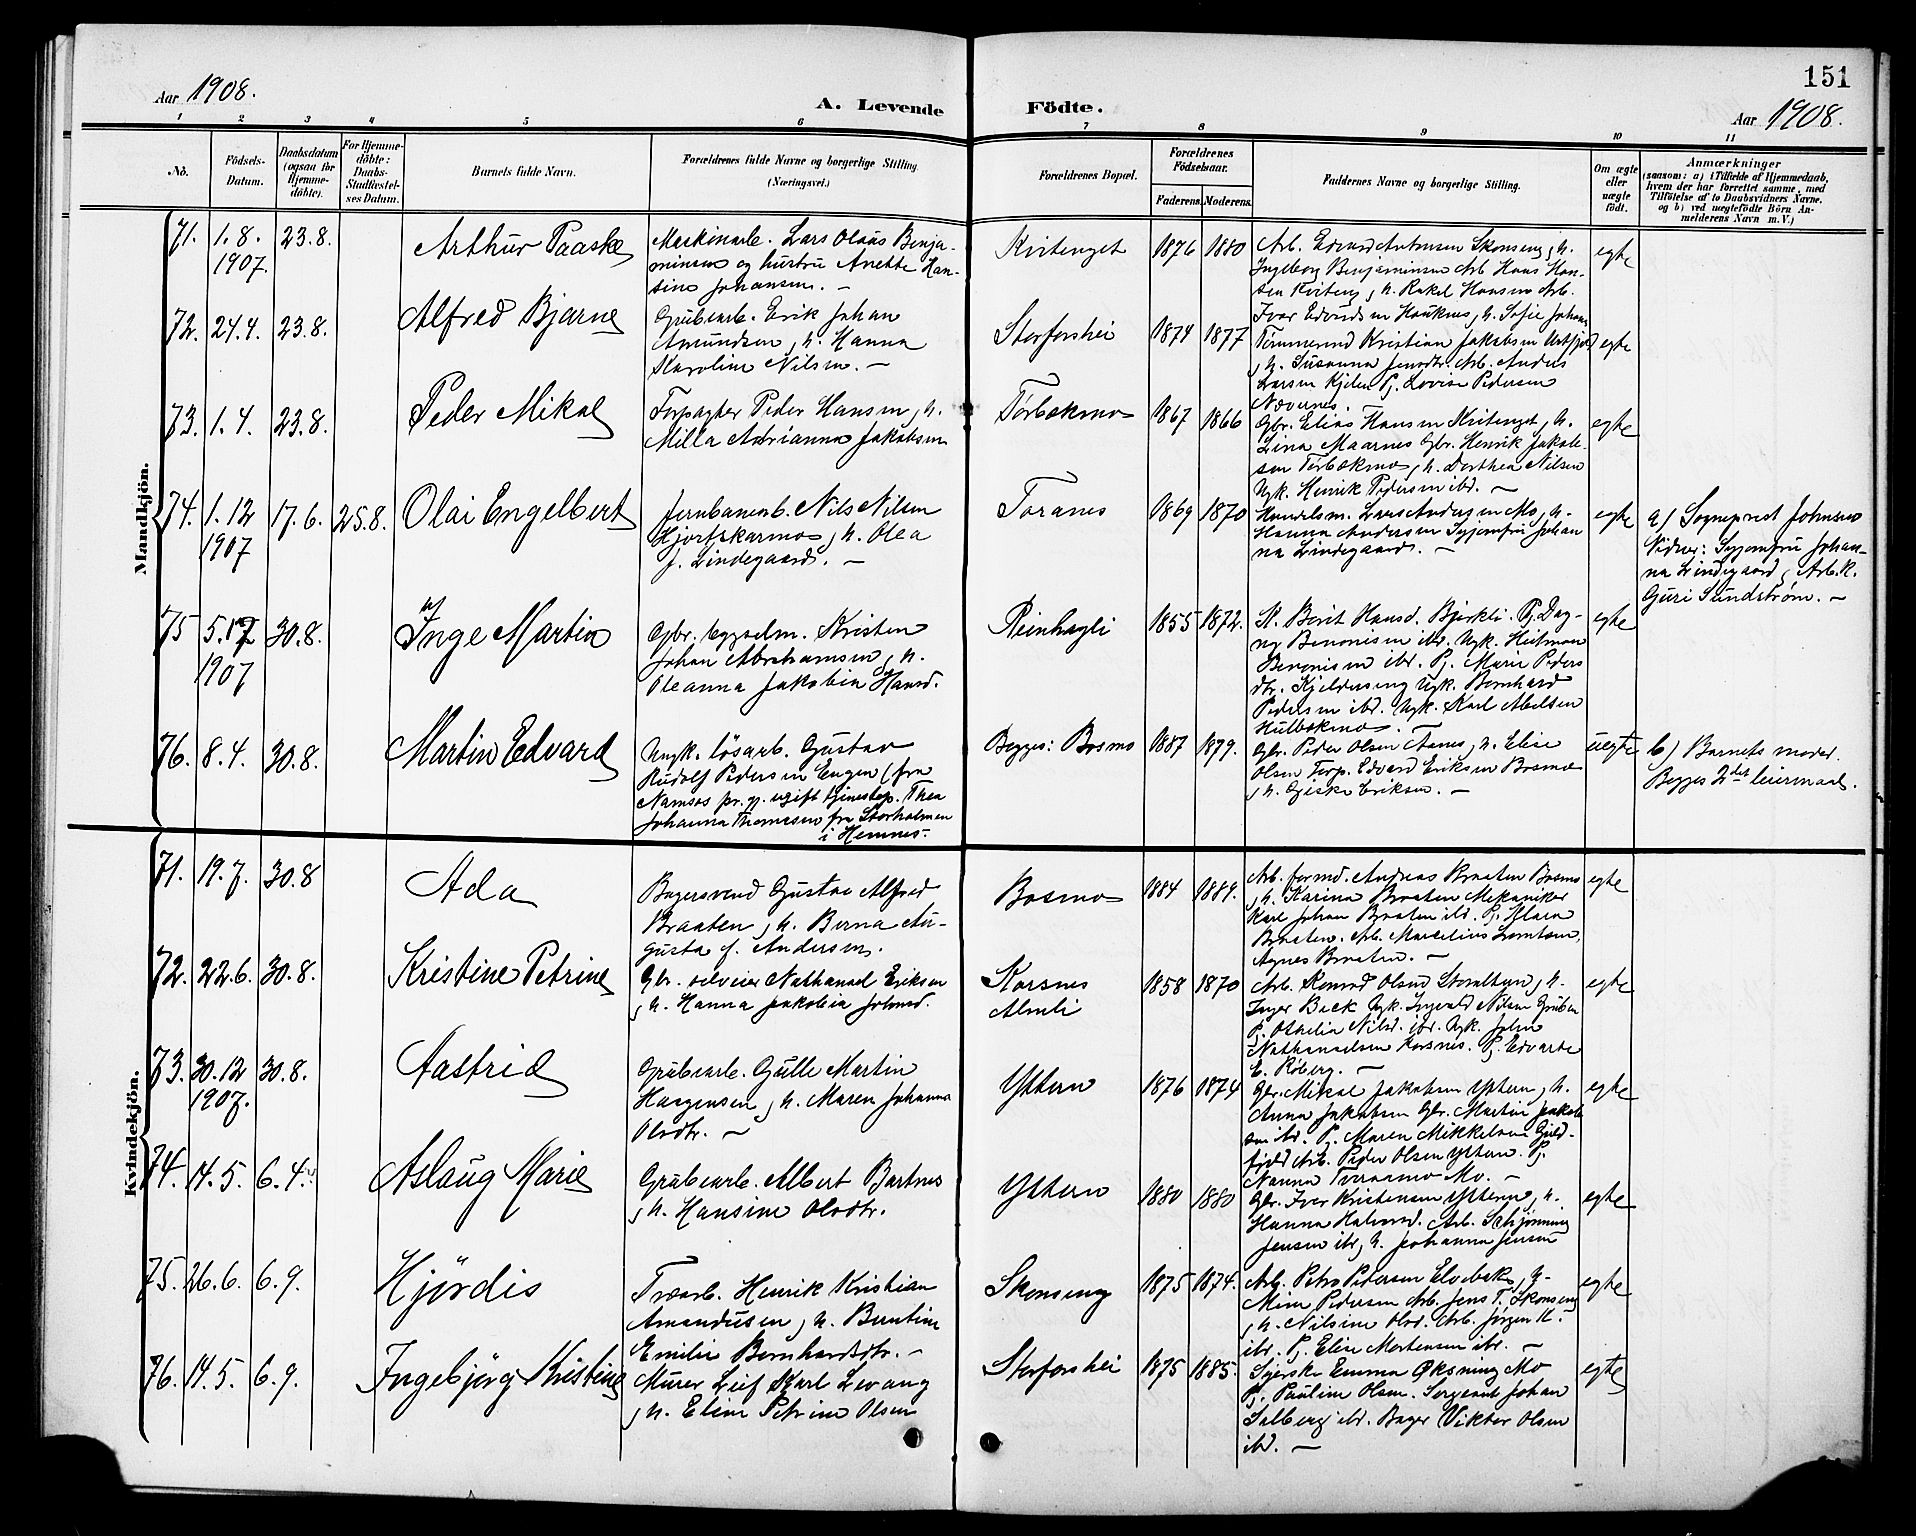 151
Aar 1908.
A. Levende Födte.
Aar 1908.
1 2 3 4 5 6 7 8 9 10 11
No.
Födsels-
Datum.
Daabsdatum
(ogsaa for
Hjemme-
döbte).
For Hjemme-
döbte:
Daabs-
Stadfæstel-
ses Datum.
Barnets fulde Navn.
Forældrenes fulde Navne og borgerlige Stilling
(Næringsvei.)
Forældrenes Bopæl.
Forældrenes
Födselsaar.
Faderens. Moderens.
Faddernes Navne og borgerlige Stilling.
Om ægte
eller
uægte
födt.
Anmærkninger
(saasom: a) i Tilfælde af Hjemmedaab,
hvem der har forrettet samme, med
Tilföielse af to Daabsvidners Navne,
og b) ved uægtefödte Börn An-
melderens Navn m. V.)
Mandkjön.
71. 1.8. 1907. 23.8. Arthur Paaske
Maskinarb. Lars Olaus Benja-
minsen og hustru Anette Han-
sine Johansen. —
Kvitenget 1876 1880
Arb. Edvard Antonsen Skonseng, h.
Ingeborg Benjaminsen Arb. Hans Han-
sen Kviteng, h. Rakel Hansen Arb.
Ivar Edvardsen Hauknes, h. Sofie Johans
egte
72. 24.4. 23.8. Alfred Bjarne
Grubearb. Erik Johan
Amundsen, h. Hanna
Karoline Nilsen. —
Storforshei 1874 1877
Tømmermd Kristian Jakobsen Urtfjeld
, h. Susanna Jensdtr. Arb. Anders
Larsen Kjelen Pj. Lovise Pedersen
Nævernes.
egte
73. 1.4. 23.8. Peder Mikal
Forpagter Peder Hansen, h.
Milla Adrianna Jakobsen
Tørbækmo 1867 1866
Gbr. Elias Hansen Kvitenget, h.
Lina Maarnes Gbr. Henrik Jakob-
sen Tørbækmo, h. Dorthea Nilsen
Ugk. Henrik Pedersen ibd. —
egte
74. 1.12 1907 17.6. 25.8. Olai Engelbert
Jernbanearb. Nils Nilsen
Hjortskarmo, h. Olea
f. Lindegaard. —
Toranes 1869 1870
Handelsm. Lars Andersen Mo, h.
Hanna Andersen Syjomfru Johan
na Lindegaard. —
egte
a) Sogneprest Johnsen
Vidner: Syjomfru Johan-
na Lindegaard, Arb. k.
Guri Sundstrøm. —
75 5.12 1907 30.8. Inge Martin
Gbr. bygselm. Kristen
Johan Abrahamsen, h.
Oleanna Jakobin Hansd.
Reinhagli 1855 1872.
St. Berit Hansd. Bjerkli. Pj. Dag-
ny Benonisen ibd. Ugk. Heitman
Benonisen ibd. Pj. Marie Peders
dtr. Kjeldereng Ugk. Bernhard
Pedersen ibd. Ugk. Karl Abelsen
Hulbækmo.
egte
76. 8.4. 30.8. Martin Edvard
Ungk. løsarb. Gustav
Rudolf Pedersen Engen (fra
Namsos pr. g. ugift tjenestep. Thea
Johanna Thomasen fra Storholmen
i Hemnes.
Begges: Bosmo 1887 1879.
Gbr. Peder Olsen Tanes, h. Elise
Olsen Forp. Edvard Eriksen Bosmo
, h. Gjiske Eriksen. —
uegte
b) Barnets moder.
Begges 2det leiermaal.
Kvindekjön.
71. 19.7. 30.8 Ada
Bagersvend Gustav Alfred
Braaten, h. Berna Au-
gusta f. Andersen.
Bosmo 1884 1889.
Arb. formd. Andreas Braaten Bosmo
, h. Karina Braaten Mekaniker
Karl Johan Braaten ibd. Pj. Klara
Braaten. Arb. Marselius Lorntsen,
Agnes Braaten. —
egte
72. 22.6. 30.8. Kristine Petrine
Gbr. selveier Nathanael Eriksen
, h. Hanna Jakobia Johnsd.
Korsnes
Almli
1858 1870
Arb. Konrad Olsen Storalteren, h.
Inger Bæk Ugk. Ingvald Nilsen Gruben
Pj. Othelia Nilsd. ibd. Ugk. John
Nathanaelsen Korsnes. Pj. Edvarte
E. Røberg. —
egte
73. 30.12 1907. 30.8. Aastrid
Grubearb. Gulle Martin
Haagensen, h. Maren Johanna
Olsdtr. —
Yttern 1876 1874
Gbr. Mikal Jakobsen Yttern, h.
Anna Jakobsen Gbr. Martin Jakob
sen ibd. Pj. Maren Mikkelsen Guld-
fjeld Arb. Peder Olsen Yttern. Pj.
Nanna Tveraamo Mo. —
egte
74. 14.5. 6.4. Aslaug Marie
Grubearb. Albert Bartnes
, h. Hansine Olsdtr.
Yttern 1880 1880
Gbr. Iver Kristensen Yttern, h.
Hanna Halvorsd. Arb. Schjønning
Jensen ibd, h. Johanna Jensen
egte
75. 26.6. 6.9. Hjördis
Træarb. Henrik Kristian
Amandusen, h. Bentine
Emilie Bernhardsdtr. —
Skonseng 1875 1874.
Arb. Petro Pedersen Elvebak, h.
Mine Pedersen Arb. Jens T. Skonseng
, h. Nilsine Olsd. Arb. Jørgen K.
ibd. Pj. Elise Mortensen ibd. —
egte
76. 14.5. 6.9. Ingebjörg Kristine
Murer Lief Karl Levang
, h. Eline Petrine Olsen
Storforshei 1875 1885.
Syerske Emma Øksning Mo
Pj. Pauline Olsen. Sergeant Johan
Selberg ibd. Bager Viktor Olsen
ibd. —
egte